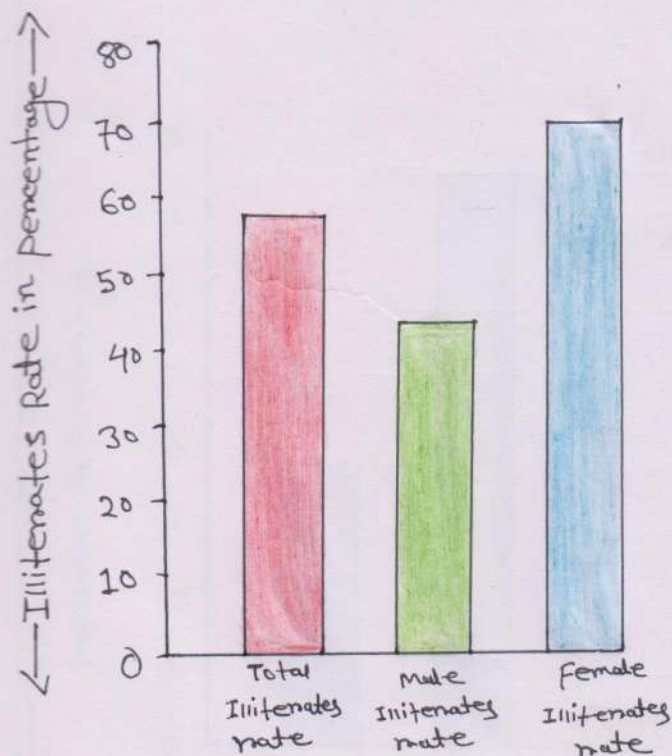 <—Illiterates Rate in percentage—>
80
70
60
50
40
30
20
10
0
Total
Illiterates
rate
Male
Illiterates
rate
Female
Illiterates
rate